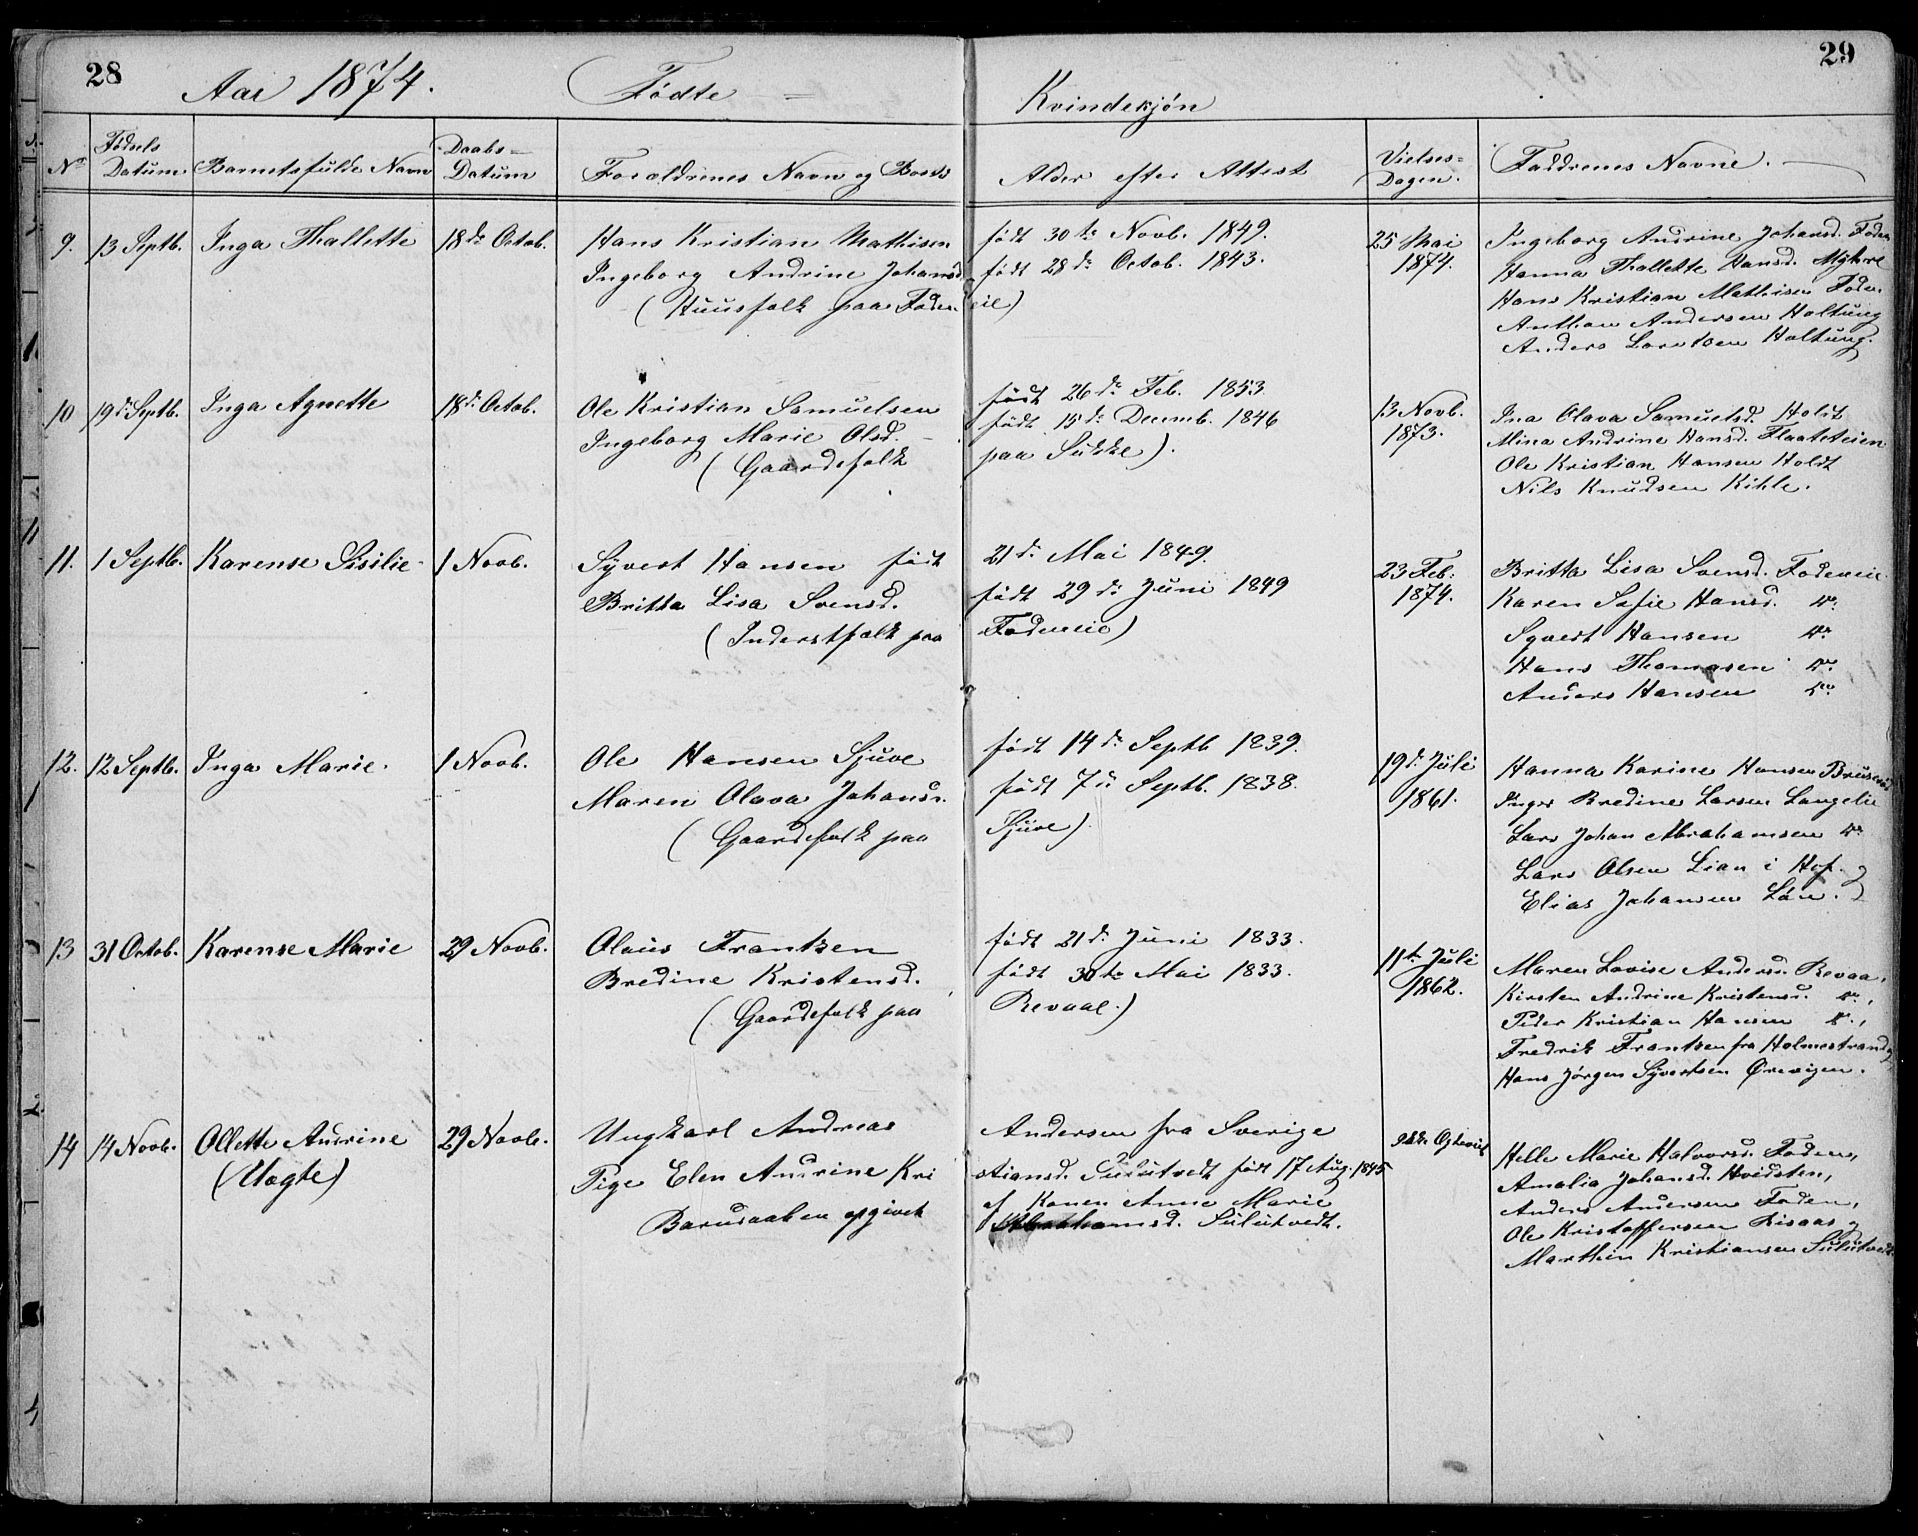 28
29
Aar 1874. Fødte Kvindekjøn
No Fødsels Datum Barnets fulde Navn Daabs- Datum Forældrenes Navn og Bosted Alder efter Attest Vielses- Dagen. Faddrenes Navne.
9. 13 Septb. Inga Thallette 18de Octob. Hans Kristian Mathisen født 30te Novb. 1849. 25 Mai 1874. Ingeborg Andrine Johansd. Foden
Ingeborg Andrine Johansd. født 28de Octob. 1843. Hanna Thallette Hansd. Myhre
(Huusfolk paa Foden eie) Hans Kristian Mathisen Foden
Anthon Andersen Holtung
Anders Lorntsen Holtung.
10 19de Septb. Inga Agnette 18de Octob. Ole Kristian Samuelsen født 26de Feb. 1853 13 Novb. 1873. Ina Olava Samuelsd. Holdt
Ingeborg Marie Olsd. født 15de Decemb. 1846 Mina Andrine Hansd. Flaateteien
(Gaardefolk paa Sukke). Ole Kristian Hansen Holdt
Nils Knudsen Kihle.
11. 1 Septb. Karense Sisilie 1 Novb. Syvert Hansen født 21de Mai 1849. 23 Feb. 1874. Britta Lisa Svensd. Fodeneie
Britta Lisa Svensd. født 29de Juni 1849 Karen Sofie Hansd. do.
(Inderstfolk paa Fodeneie) Syvert Hansen do.
Hans Thomasen do.
Anders Hansen do.
12. 12 Septb. Inga Marie. 1 Novb. Ole Hansen Sjuve født 14de Septb 1839. 19de Juli 1861. Hanna Karine Hansen Bruserød
Maren Olava Johansd. født 7de Septb. 1838. Inger Bredine Larsen Langelie
(Gaardefolk paa Sjuve). Lars Johan Abrahamsen do
Lars Olsen Lian i Hof. og
Elias Johansen Løn.
13 31 Octob. Karense Marie 29 Novb. Olaus Frantzen født 21de Juni 1833. 11te Juli 1862. Maren Lovise Andersd. Revaa,
Bredine Kristensd. født 30te Mai 1833. Kirsten Andrine Kristensd. do.,
(Gaardefolk paa Revaal.) Peder Kristian Hansen do.,
Fredrik Frantzen fra Holmestrand og
Hans Jørgen Syvertsen Ørevigen.
14 14 Novb. Ollette Andrine 29 Novb. Ungkarl Andreas Andersen fra Sverige Helle Marie Halvorsd. Foden,
(Uægte) Pige Elen Andrine Kristiansd. Sulutvedt født 17 Aug. 1845 Amalia Johansd. Hvidsten,
Barnsaaben opgivet af Konen Anne Marie Anders Andersen Foden,
Abrahamsd. Sulutvedt. Ole Kristoffersen Risaas og
Marthin Kristiansen Sulutvedt